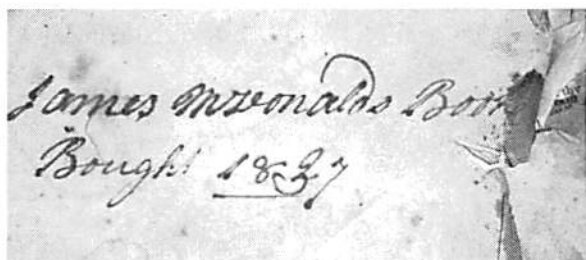 James McDonalds Book
Bought 1827